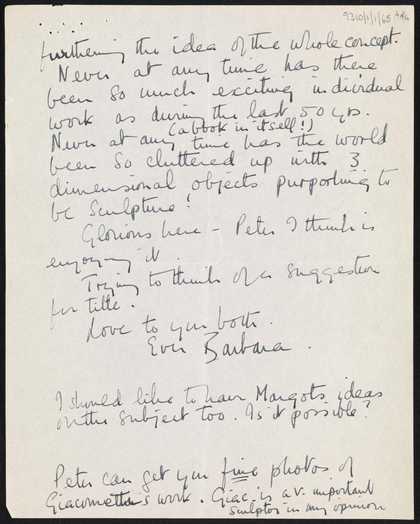 9310/1/1/65
furthering the idea of the whole concept.
Never at any time has there
been so much exciting individual
work as during the last 50 yrs.
(a book in itself!)
Never at any time has the world
been so cluttered up with 3
dimensional objects purporting to
be sculpture!
Glorious here – Peter I think is
enjoying it.
Trying to think of a suggestion
for title.
Love to you both.
Ever Barbara.
I should like to have Margots ideas
on the subject too. Is it possible?
Peter can get you fine photos of
Giacometti's work. Giac. is a v. important
sculptor in my opinion